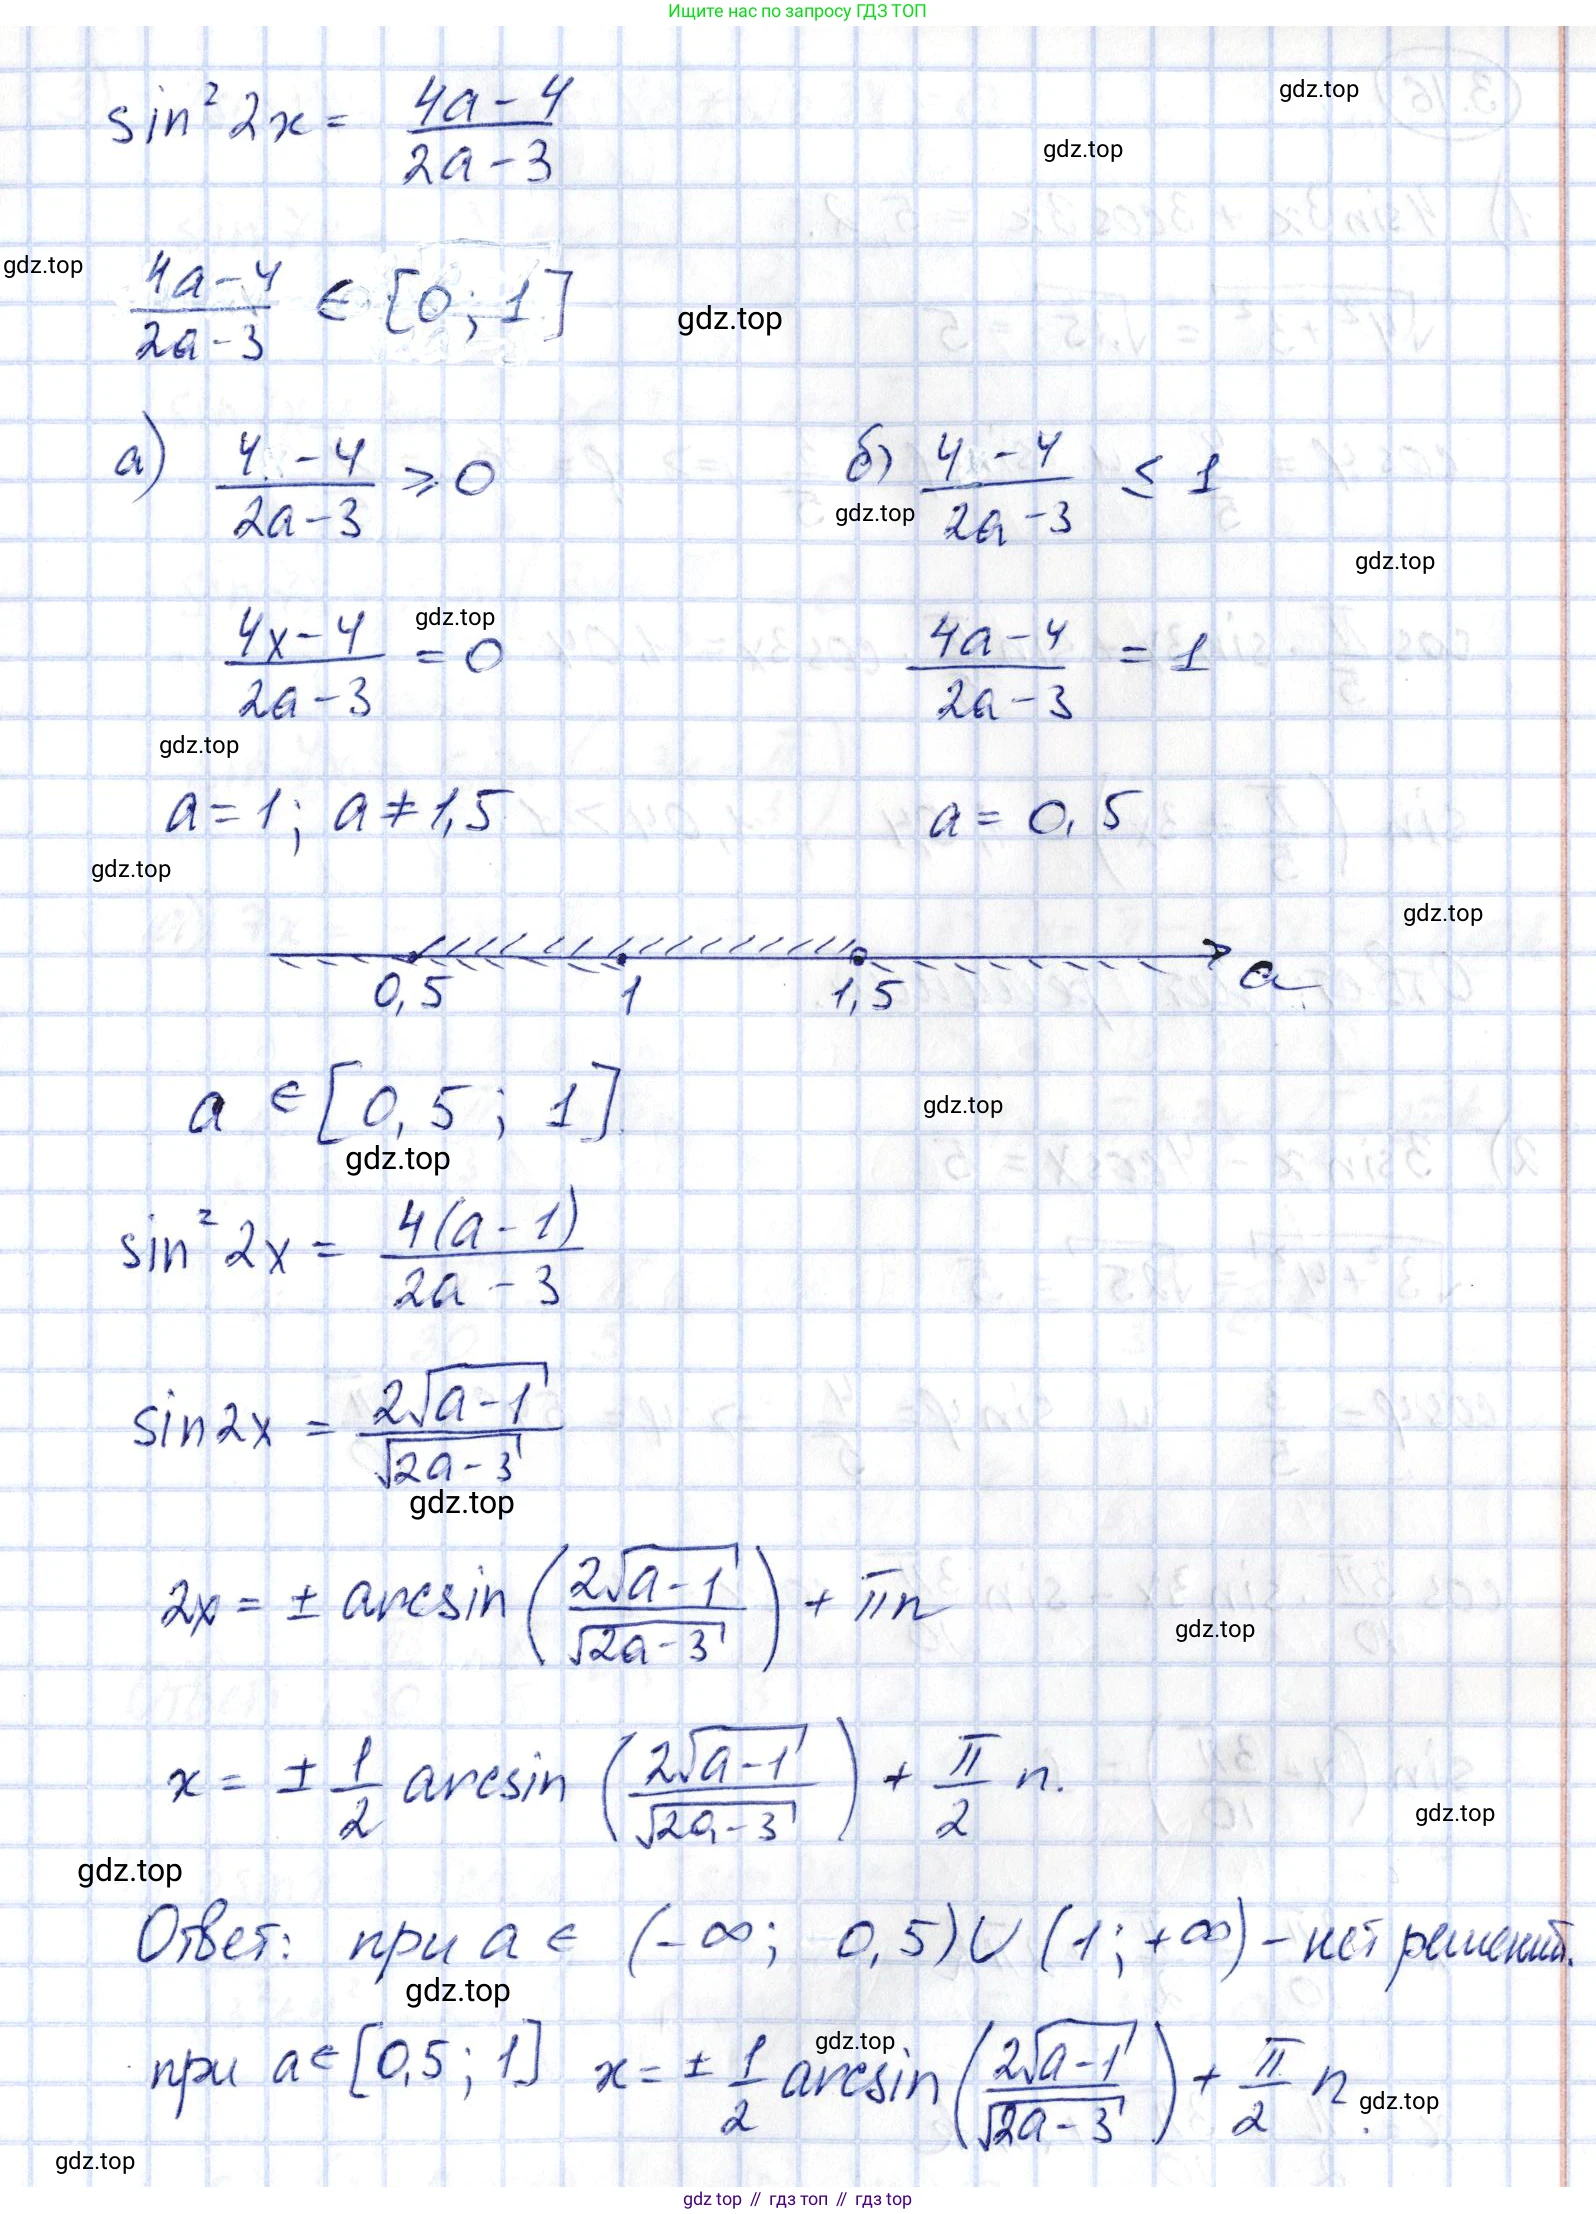 Ищите нас по запросу ГДЗ ТОП
sin² 2x = (4a - 4)/(2a - 3)
gdz.top
gdz.top
(4a - 4)/(2a - 3) ∈ [0; 1]
gdz.top
gdz.top
а) (4 - 4)/(2a - 3) ≥ 0
б) (4 - 4)/(2a - 3) ≤ 1
gdz.top
gdz.top
(4x - 4)/(2a - 3) = 0
gdz.top
(4a - 4)/(2a - 3) = 1
gdz.top
a = 1; a ≠ 1,5
a = 0,5
gdz.top
gdz.top
0,5 1 1,5 a
a ∈ [0,5; 1]
gdz.top
gdz.top
sin² 2x = 4(a - 1)/(2a - 3)
sin 2x = 2√(a - 1)/√(2a - 3)
gdz.top
2x = ± arcsin (2√(a - 1)/√(2a - 3)) + πn
gdz.top
x = ± 1/2 arcsin (2√(a - 1)/√(2a - 3)) + π/2 n.
gdz.top
gdz.top
Ответ: при a ∈ (-∞; 0,5) ∪ (1; +∞) - нет решений.
gdz.top
при a ∈ [0,5; 1] x = ± 1/2 arcsin (2√(a - 1)/√(2a - 3)) + π/2 n.
gdz.top
gdz.top
gdz.top
gdz top // гдз топ // gdz.top